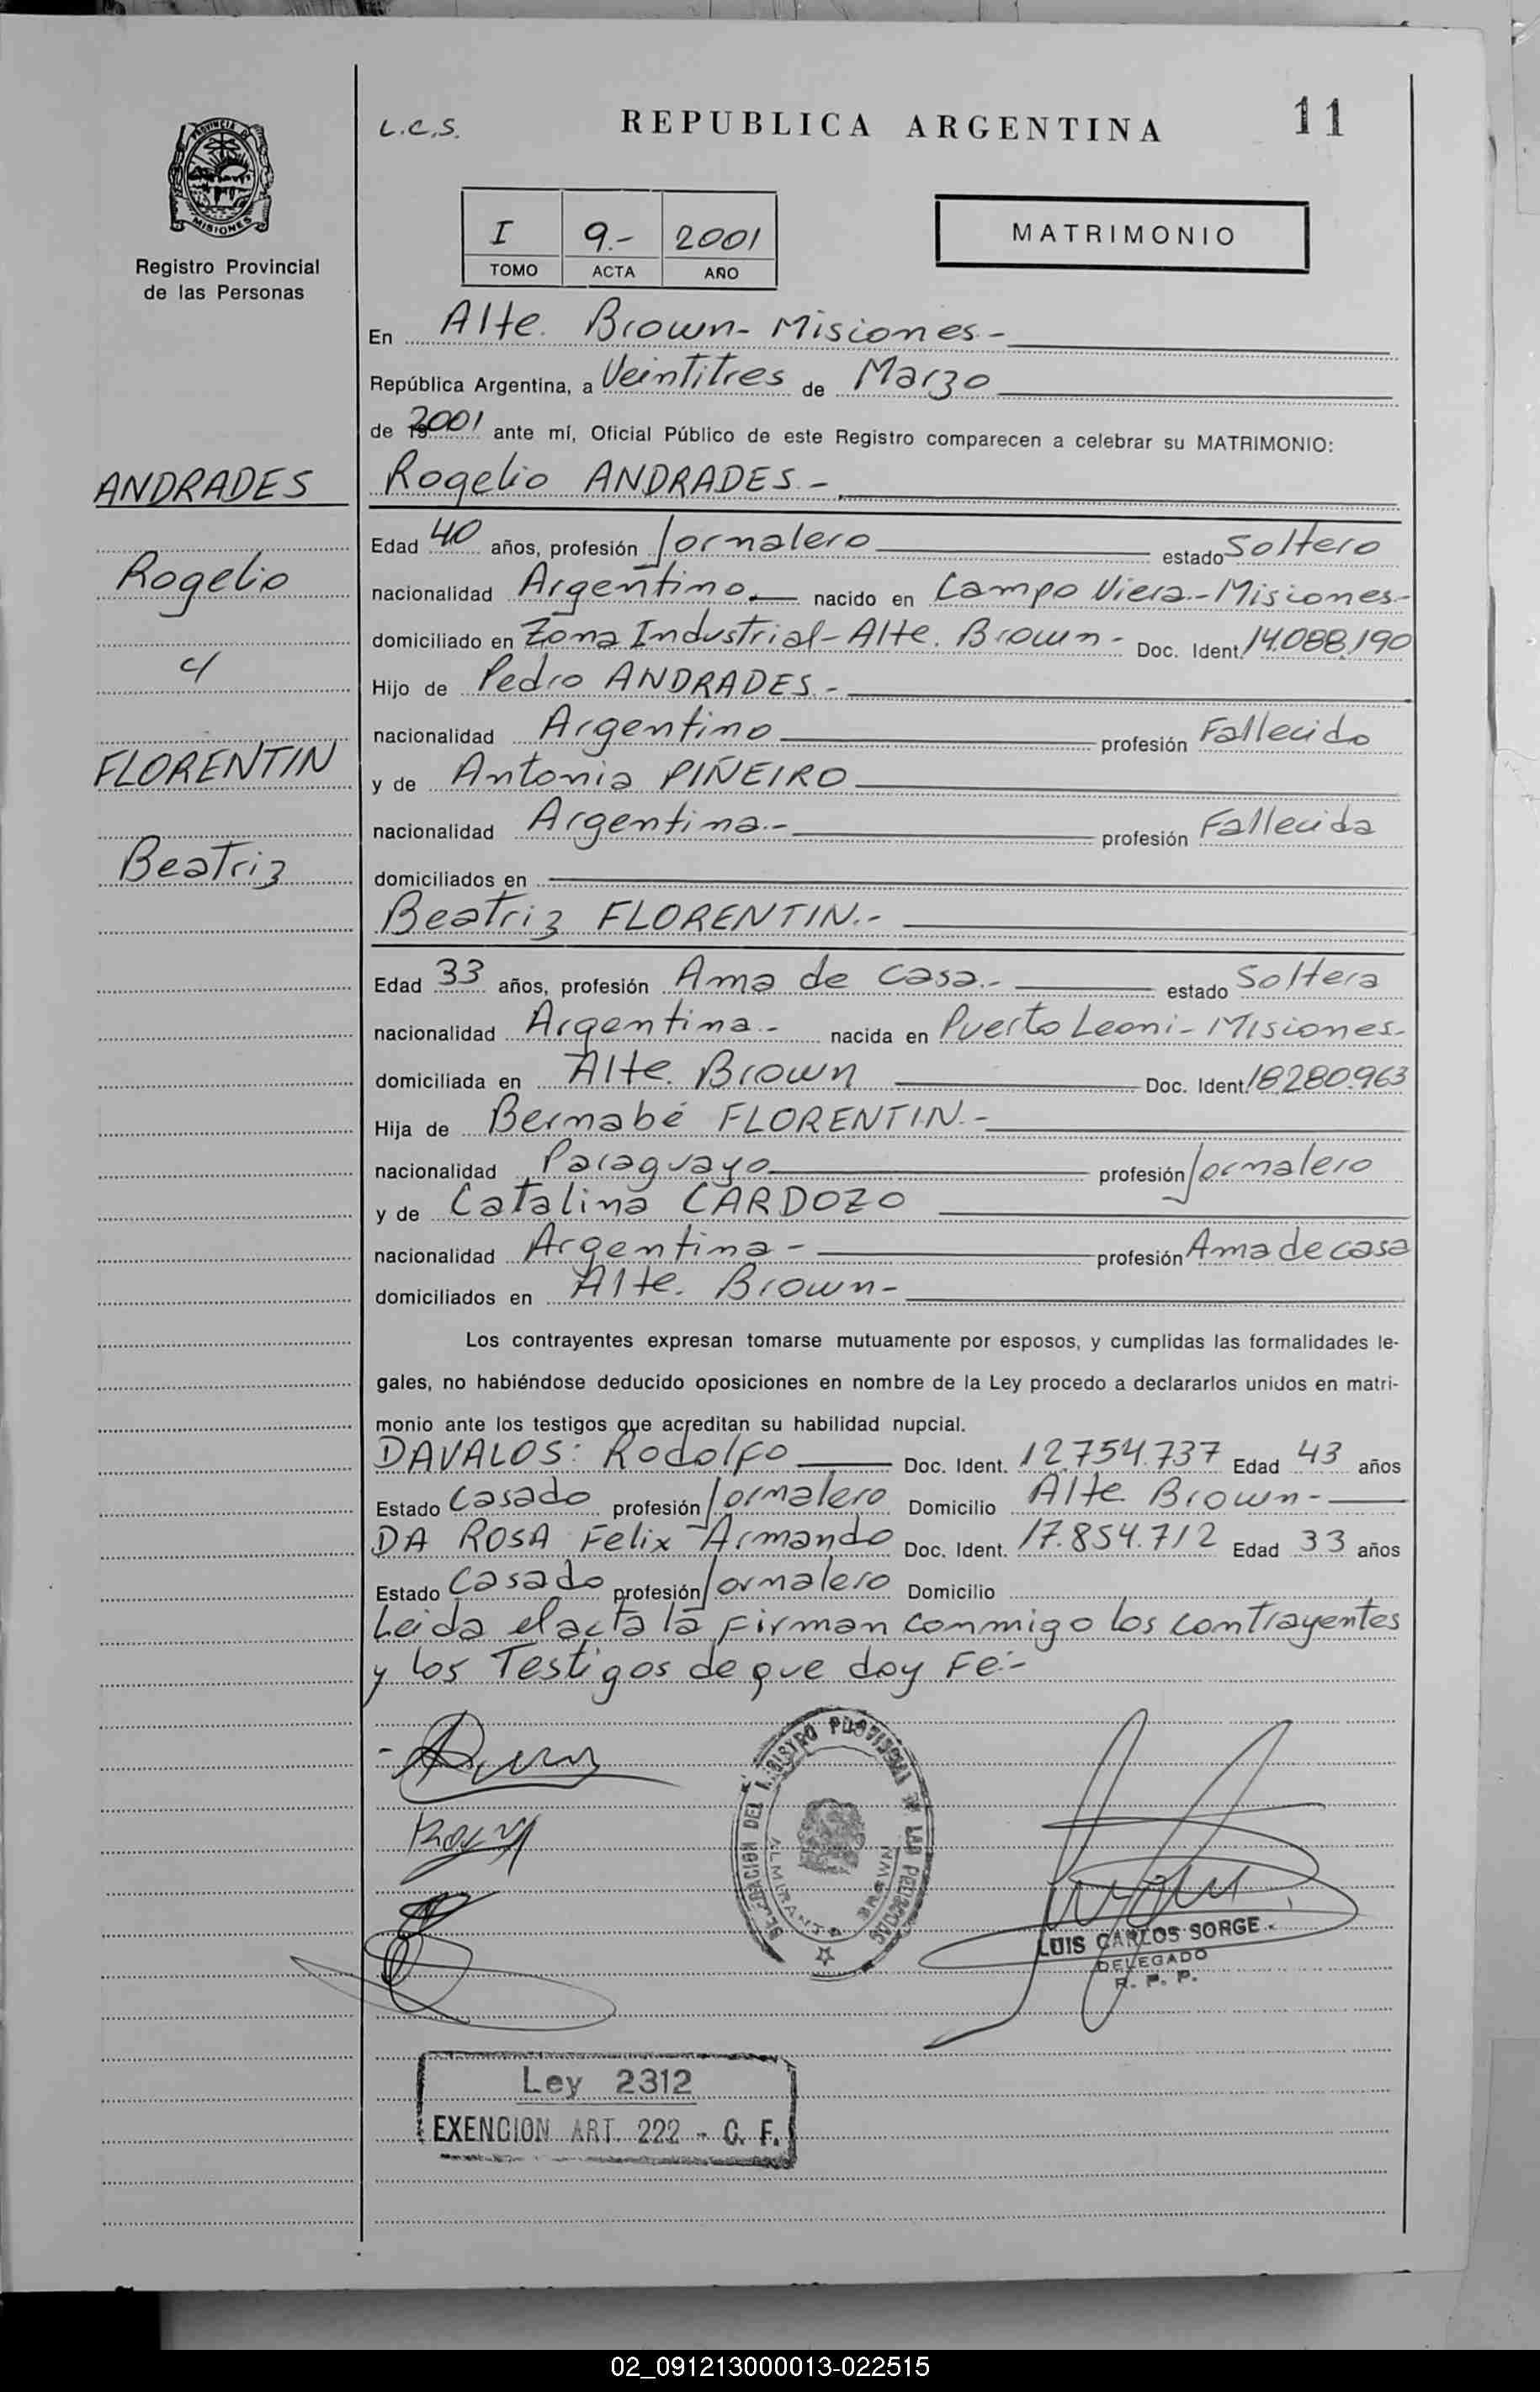 L.C.S.
REPUBLICA ARGENTINA
11
PROVINCIA DE
MISIONES
Registro Provincial
de las Personas
I 9.- 2001
TOMO ACTA AÑO
MATRIMONIO
En Alte. Brown - Misiones -
República Argentina, a Veintitres de Marzo
de 2001 ante mí, Oficial Público de este Registro comparecen a celebrar su MATRIMONIO:
ANDRADES
Rogelio
c/
FLORENTIN
Beatriz
Rogelio ANDRADES.-
Edad 40 años, profesión Jornalero estado Soltero
nacionalidad Argentino. nacido en Campo Viera - Misiones-
domiciliado en Zona Industrial - Alte. Brown - Doc. Ident. 14.088.190
Hijo de Pedro ANDRADES.-
nacionalidad Argentino profesión Fallecido
y de Antonia PIÑEIRO
nacionalidad Argentina.- profesión Fallecida
domiciliados en
Beatriz FLORENTIN.-
Edad 33 años, profesión Ama de casa.- estado Soltera
nacionalidad Argentina.- nacida en Puerto Leoni - Misiones.-
domiciliada en Alte. Brown Doc. Ident. 18.280.963
Hija de Bernabé FLORENTIN.-
nacionalidad Paraguayo profesión Jornalero
y de Catalina CARDOZO
nacionalidad Argentina - profesión Ama de casa
domiciliados en Alte. Brown -
Los contrayentes expresan tomarse mutuamente por esposos, y cumplidas las formalidades le-
gales, no habiéndose deducido oposiciones en nombre de la Ley procedo a declararlos unidos en matri-
monio ante los testigos que acreditan su habilidad nupcial.
DAVALOS: Rodolfo Doc. Ident. 12.754.737 Edad 43 años
Estado Casado profesión Jornalero Domicilio Alte Brown -
DA ROSA Felix Armando Doc. Ident. 17.854.712 Edad 33 años
Estado Casado profesión Jornalero Domicilio
Leida el acta la firman conmigo los contrayentes
y los Testigos de que doy Fe:-
ALMIRANTE BROWN
LUIS CARLOS SORGE
DELEGADO
R. P. P.
Ley 2312
EXENCION ART. 222 - C. F.
02_091213000013-022515